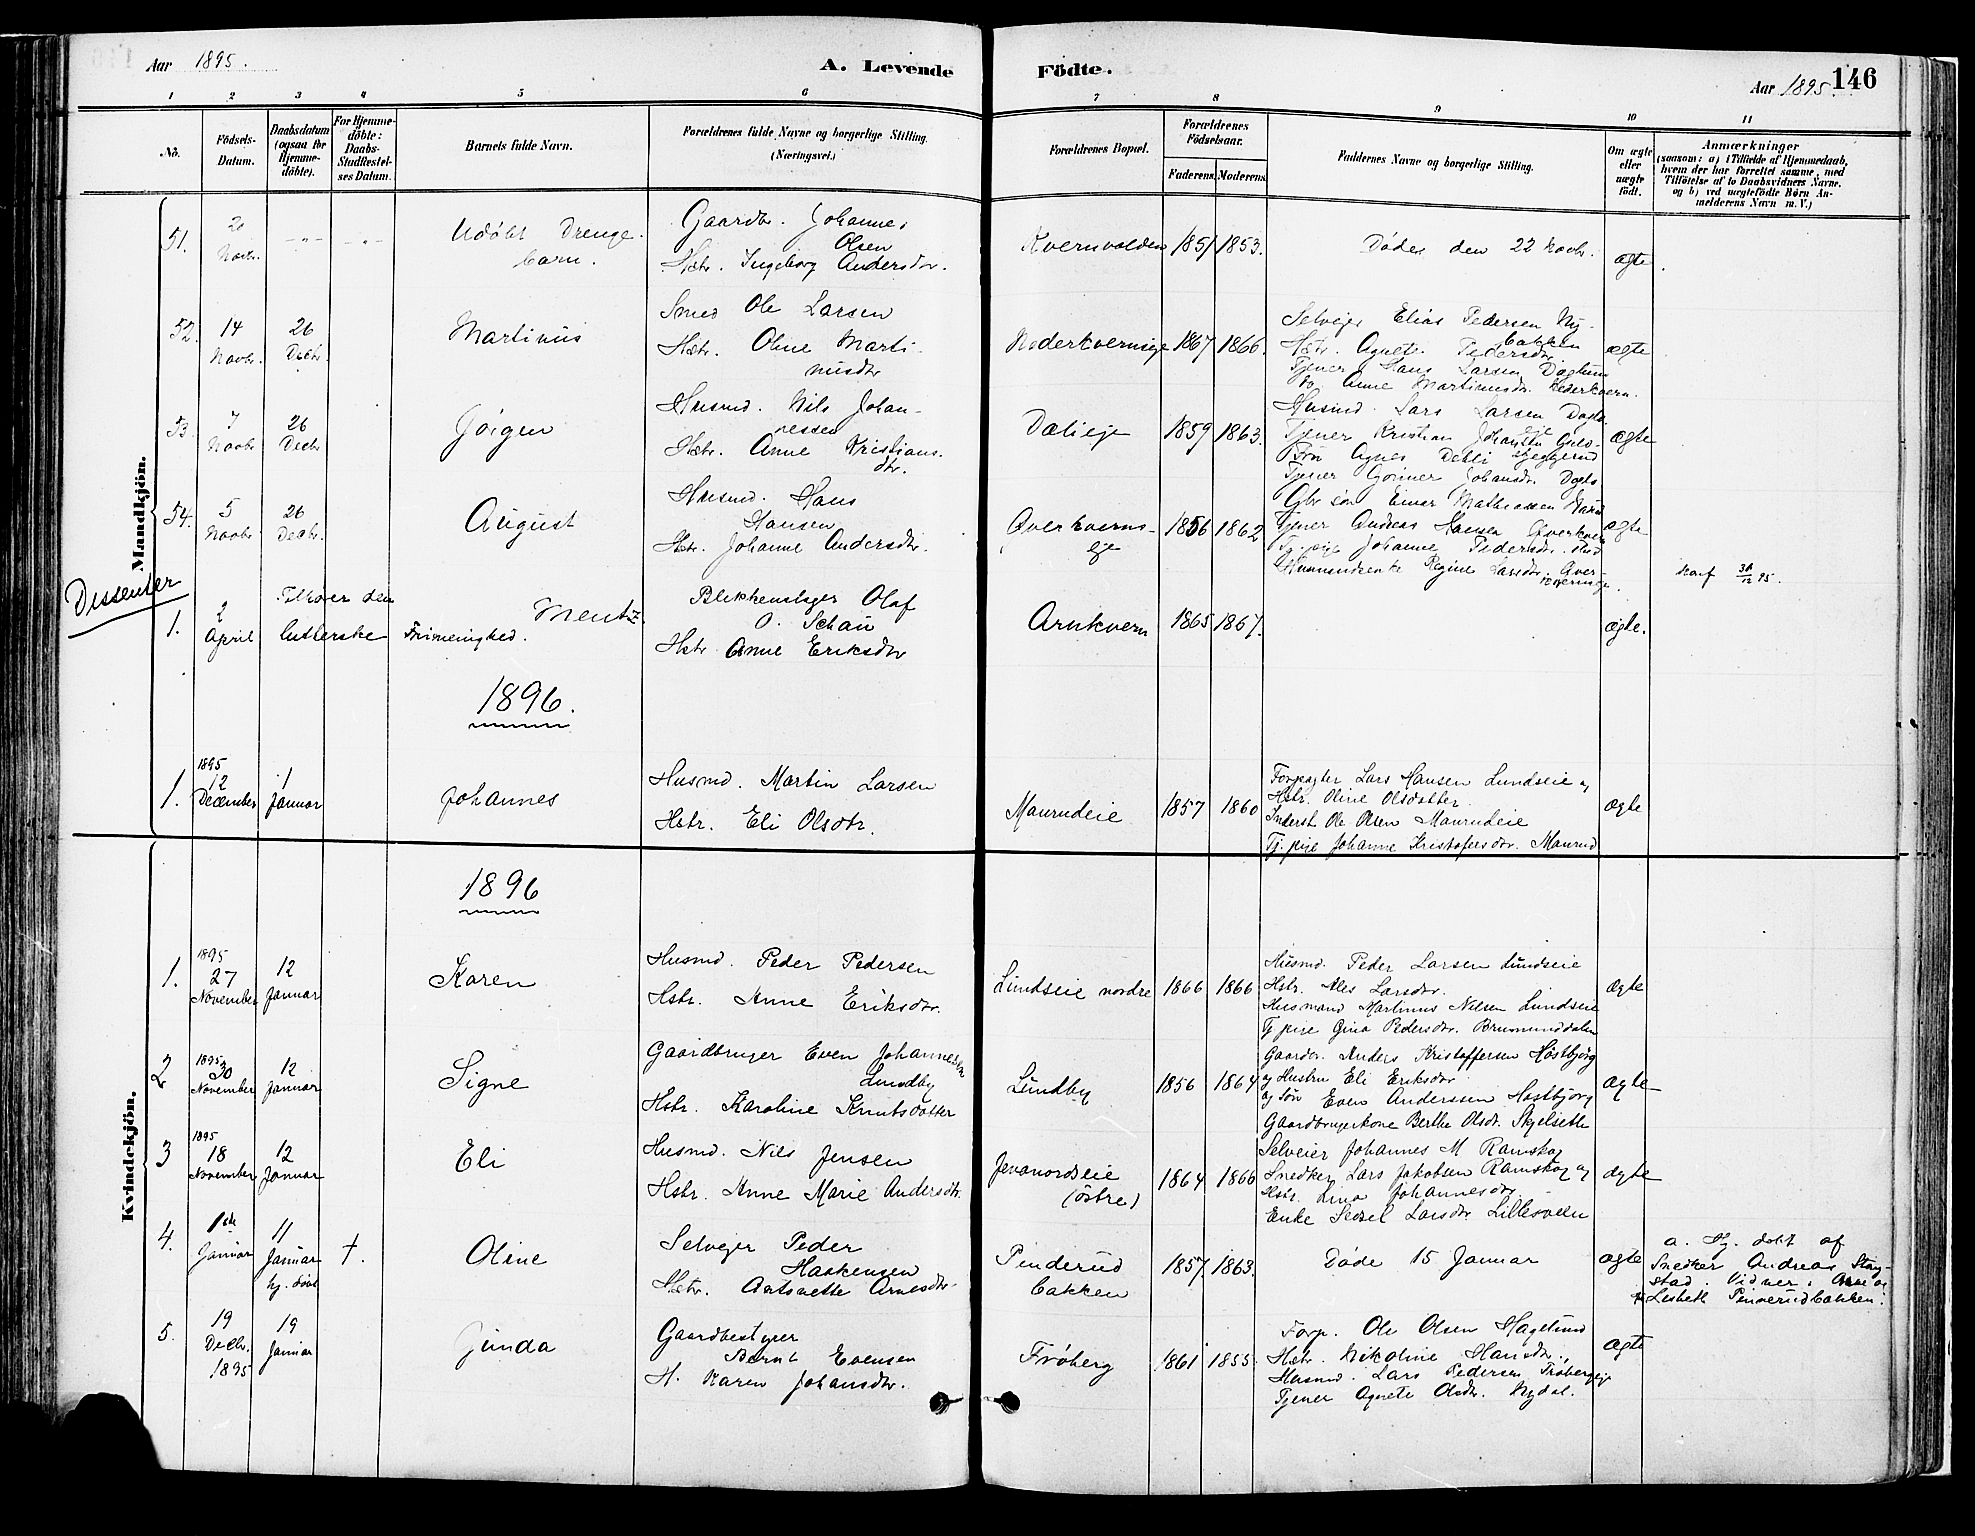 Aar 1895.
A. Levende
Födte.
Aar 1895. 146
1 2 3 4 5 6 7 8 9 10 11
No.
Födsels-
Datum.
Daabsdatum
(ogsaa for
Hjemme-
döbte).
For Hjemme-
döbte:
Daabs-
Stadfæstel-
ses Datum.
Barnets fulde Navn.
Forældrenes fulde Navne og borgerlige Stilling.
(Næringsvei.)
Forældrenes Bopæl.
Forældrenes
Födselsaar.
Faderens.
Moderens.
Faddernes Navne og borgerlige Stilling.
Om ægte
eller
uægte
födt.
Anmærkninger
(saasom: a) i Tilfælde af Hjemmedaab,
hvem der har forrettet samme, med
Tilföielse af to Daabsvidners Navne,
og b) ved uægtefödte Börn An-
melderens Navn m. V.)
Mandkjön.
51.
20
Novbr.
-"-
-"-
Udöbt Drenge-
barn.
Gaardbr. Johannes
Olsen
Hstr. Ingeborg Andersdtr.
Kvernvolden
1851
1853.
Döde den 22 Novbr.
ægte
52.
14
Novbr.
26
Decbr.
Martinius
Smed Ole Larsen
Hstr. Oline Marti-
niusdtr
Nederkvernseje
1867
1866.
Selvejer Elias Pedersen Ny-
bakken
Hstr. Agnete Pedersdtr.
Tjener Hans Larsen
do. Anne Martinusdtr. Nederkvern.
ægte
53.
7
Novbr.
26
Decbr
Jörgen
Husmd. Nils Johan-
nessen
Hstr. Anne Kristians-
dtr.
Dælieje
1859
1863.
Husmd. Lars Larsen
Tjener Kristian Johansen
Agnes Dehli
Tjener Johansdtr.
ægte
54.
5
Novbr.
26
Decbr.
August
Husmd. Hans
Hansen
Hstr. Johanne Andersdtr.
Overkverns-
eje
1856
1862
Gbr sön Einar Mathiassen
Tjener Andreas Hansen Overkvern
Tj. pige Johanne Pedersdtr.
Husmandsenke Regine Larsdtr. Over-
kvernseje.
ægte
Konf 30/12 95.
Dissenter
1.
2
April
Tilhører den
lutherske Frimenighed.
Mentz.
Blikkenslager Olaf
O. Schau
Hstr. Anne Eriksdtr
Arnkvern
1865
1867.
ægte.
1896.
1.
1895
12
December
1
Januar
Johannes
Husmd. Martin Larsen
Hstr. Eli Olsdtr.
Maurudeie
1857
1860
Forpagter Lars Hansen Lundseie og
Hstr. Oline Olsdatter.
Inderst Ole Olsen Maurudeie
Tj. pige Johanne Kristofersdtr. Maurud
ægte
Kvindekjön.
1896
1.
1895
27
November
12
Januar
Karen
Husmd. Peder Pedersen
Hstr. Anne Eriksdtr.
Lundseie nordre
1866
1866
Husmd. Peder Larsen Lundseie
Hstr. Larsdtr.
Husmand Martinus Nilsen Lundseie
Tj. pige Gina Pedersdtr. Brumunddalen
ægte
2
1895
30
November
12
Januar
Signe
Gaardbruger Even Johannessen
Lundby
Hstr. Karoline Knutsdatter
Lundby
1856
1864
Gaardbr. Anders Kristoffersen Höstbjörg
og Hustru Eli Eriksdtr
og Sön Even Anderssen Höstbjörg
Gaardbrugerkone Berthe Olsdt. Skjelseth
ægte
3
1895
18
November
12
Januar
Eli
Husmd. Nils Jensen
Hstr. Anne Marie Andersdtr.
Jevanordseie
(östre)
1864
1866
Selveier Johannes M Ramskog
Snedker Lars Jakobsen Ramskog og
Hstr. Lina Johannesdtr.
Enke Larsdtr Lillesveen
ægte
4.
1ste
Januar
11
Januar
hj. döbt
†.
Oline
Selvejer Peder
Haakensen
Hstr. Antonette Arnesdtr.
Pinderud
bakken
1857.
1863.
Döde 15 Januar
ægte
a. Hj. döbt af
Snedker Andreas Stag-
stad. Vidner: Arne og
Lisbeth Pinnerudbakken.
5.
19
Decbr.
1895
19
Januar
Jinda
Gaardbestyrer
Bernt Evensen
H. Karen Johansdtr.
Fröberg
1861
1855.
Forp. Ole Olsen Hagelund
Hstr. Nikoline Hansdtr.
Husmd. Lars Pedersen Fröbergeje
Tjener Agnete Olsdtr. Nydal.
ægte